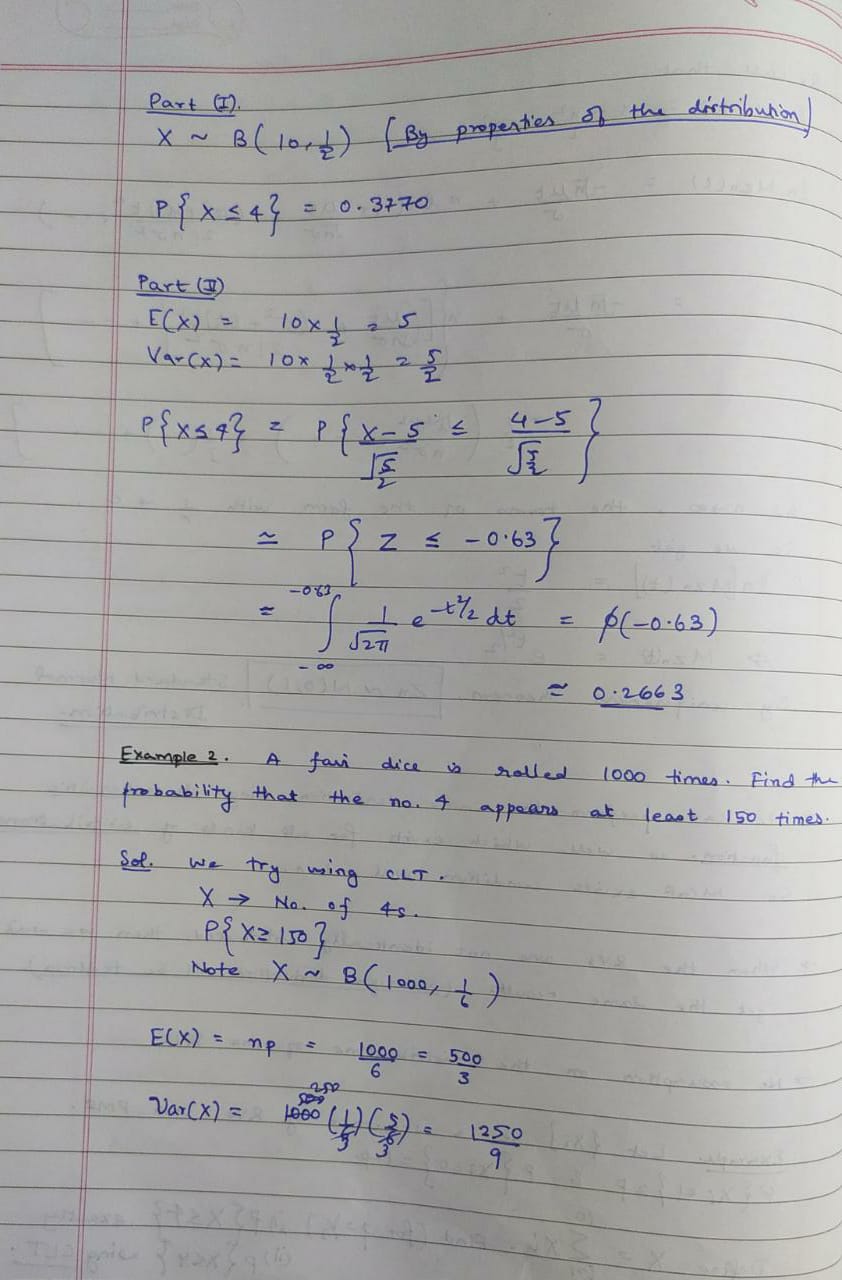 Part (I).
X ~ B(10, 1/2) [By properties of the distribution]
P{X ≤ 4} = 0.3770
Part (II)
E(X) = 10 × 1/2 = 5
Var(X) = 10 × 1/2 × 1/2 = 5/2
P{X ≤ 4} = P{(X-5)/√(5/2) ≤ (4-5)/√(5/2)}
≃ P{Z ≤ -0.63}
= ∫_{-∞}^{-0.63} 1/√(2π) e^{-t²/2} dt = ϕ(-0.63)
≃ 0.2663
Example 2. A fair dice is rolled 1000 times. Find the
probability that the no. 4 appears at least 150 times.
Sol. We try using CLT.
X → No. of 4s.
P{X ≥ 150}
Note X ~ B(1000, 1/6)
E(X) = np = 1000/6 = 500/3
Var(X) = 1000 (1/6)(5/6) = 1250/9